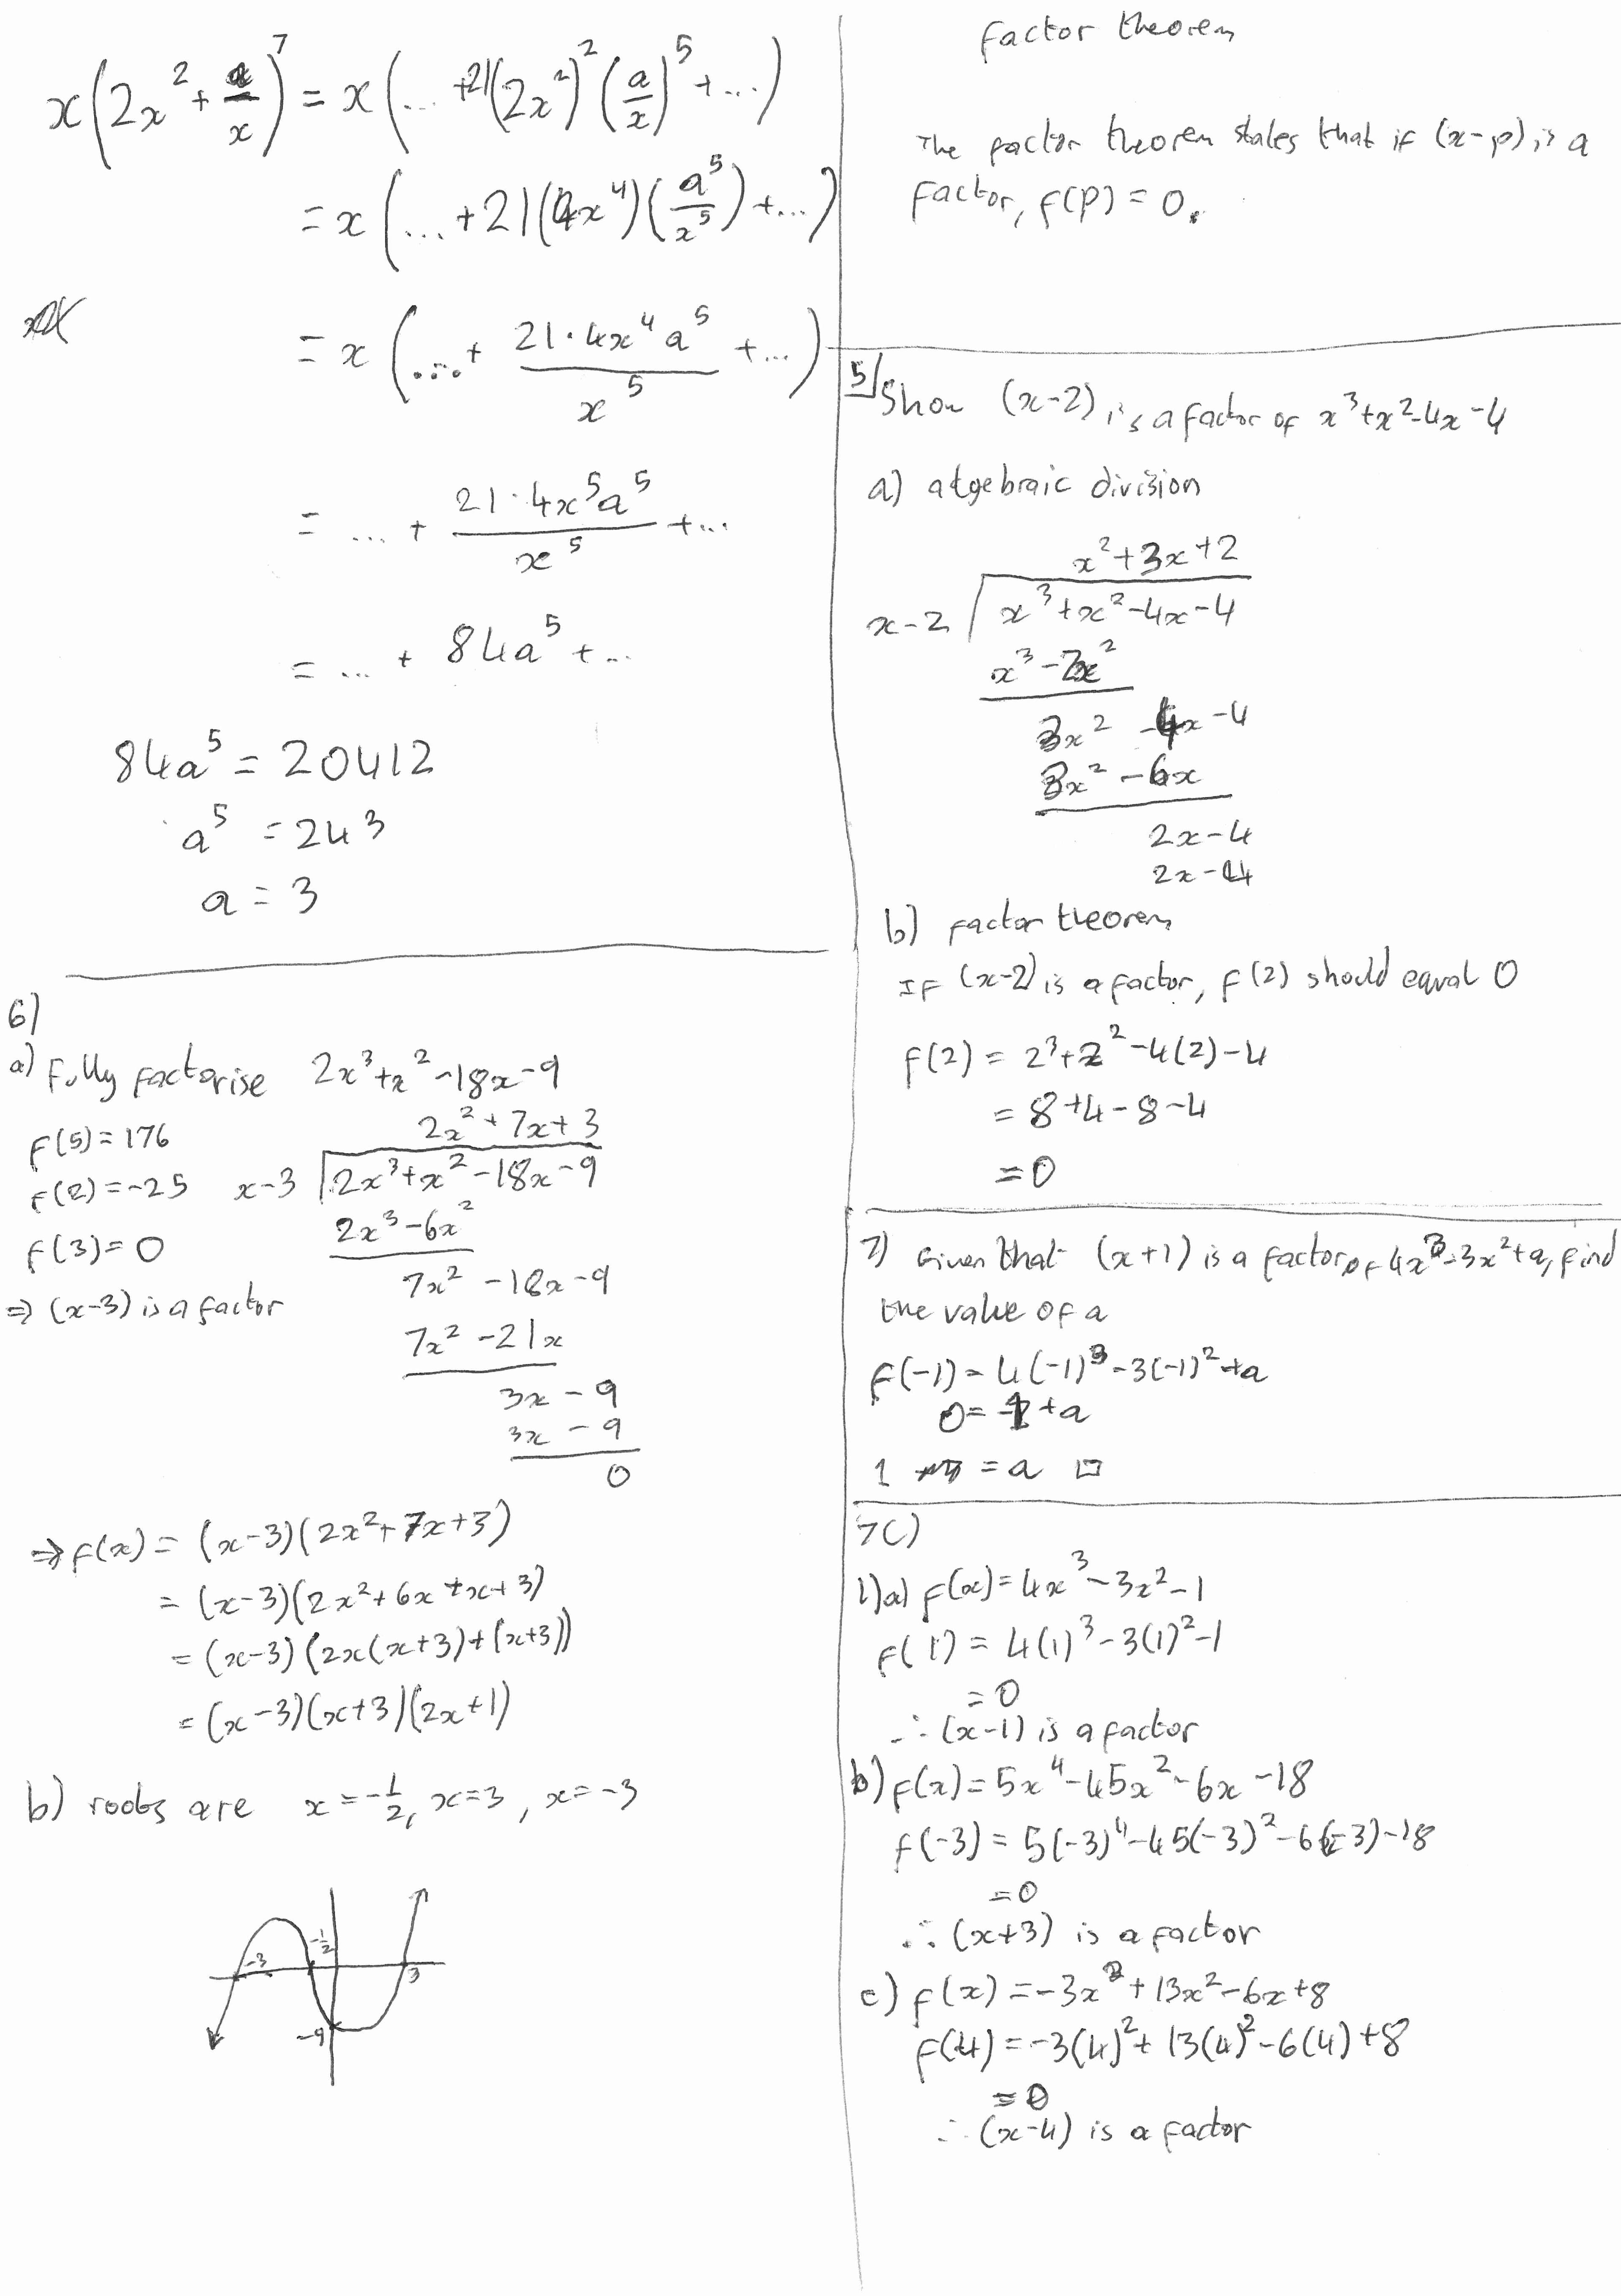 x(2x² + a/x)⁷ = x(... + 21(2x²)²(a/x)⁵ + ...)
= x(... + 21(4x⁴)(a⁵/x⁵) + ...)
= x(... + 21·4x⁴a⁵/x⁵ + ...)
= ... + 21·4x⁵a⁵/x⁵ + ...
= ... + 84a⁵ + ...
84a⁵ = 20412
a⁵ = 243
a = 3
6)
a) Fully factorise 2x³+x²-18x-9
f(5) = 176
f(2) = -25
f(3) = 0
⇒ (x-3) is a factor
2x² + 7x + 3
x-3 2x³+x²-18x-9
2x³-6x²
7x² -18x-9
7x² -21x
3x - 9
3x - 9
0
⇒ f(x) = (x-3)(2x²+7x+3)
= (x-3)(2x²+6x+x+3)
= (x-3)(2x(x+3)+(x+3))
= (x-3)(x+3)(2x+1)
b) roots are x = -1/2, x=3, x=-3
-3
-1/2
3
-9
factor theorem
The factor theorem states that if (x-p) is a
factor, f(p) = 0.
5)
Show (x-2) is a factor of x³+x²-4x-4
a) algebraic division
x²+3x+2
x-2 x³+x²-4x-4
x³-2x²
3x² -4x-4
3x² -6x
2x-4
2x-4
b) factor theorem
If (x-2) is a factor, f(2) should equal 0
f(2) = 2³+2²-4(2)-4
= 8+4-8-4
=0
7) Given that (x+1) is a factor of 4x³-3x²+a, find
the value of a
f(-1) = 4(-1)³-3(-1)²+a
0= +a
1 = a □
7C)
1)a) f(x) = 4x³-3x²-1
f(1) = 4(1)³-3(1)²-1
= 0
∴ (x-1) is a factor
b) f(x) = 5x⁴-45x²-6x-18
f(-3) = 5(-3)⁴-45(-3)²-6(-3)-18
=0
∴ (x+3) is a factor
c) f(x) = -3x³+13x²-6x+8
f(4) = -3(4)²+13(4)²-6(4)+8
= 0
∴ (x-4) is a factor